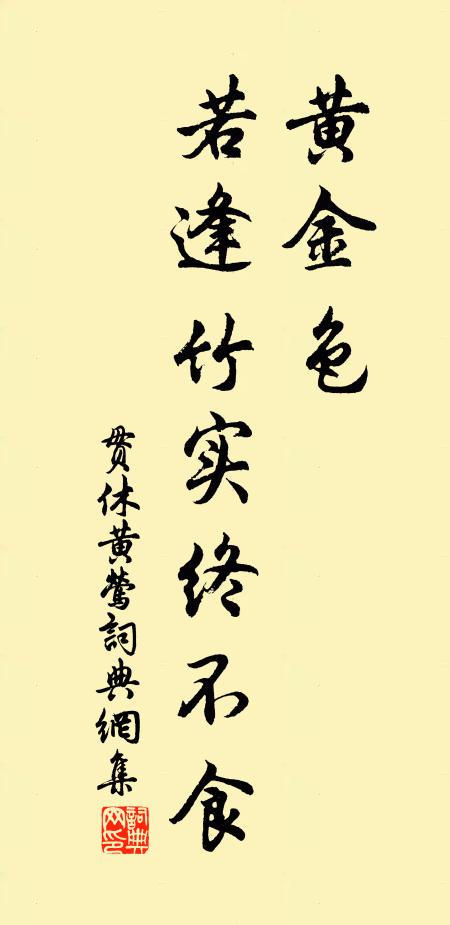 黄金色
若逢竹实终不食
贯休黄莺詞典網集
詞典网印